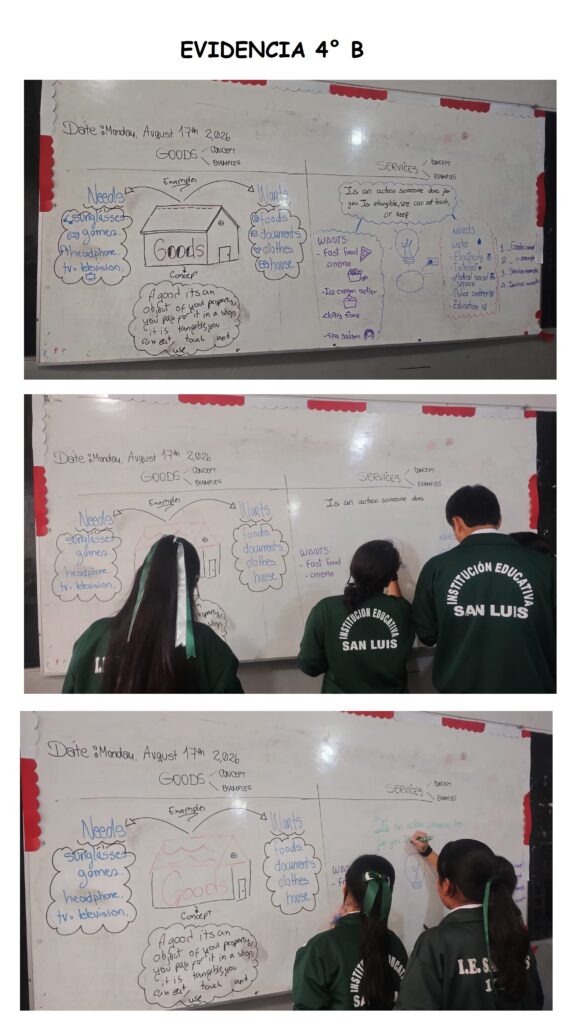 EVIDENCIA 4° B
Date: Monday, August 17th 2,026
GOODS
CONCEPT
EXAMPLES
SERVICES
CONCEPT
EXAMPLES
Examples
Needs
sunglasses
games
headphone.
tv = television.
Wants
foods
documents
clothes
house
Goods
Concept
A good its an
object of your property,
you pay for it in a shop,
it is tangible, you
can eat, touch and
use
Is an action someone does for
you. Is intangible, we can not touch,
or keep
WANTS
- Fast food
cinema
- Ice cream seller
store
- spa salon
NEEDS
- Water
- Electricity
- Internet
- Medical social
service
- Police
- Education
Date: Monday, August 17th 2,026
GOODS
CONCEPT
EXAMPLES
SERVICES
CONCEPT
EXAMPLES
Examples
Needs
sunglasses
games
headphone.
tv = television.
Wants
foods
documents
clothes
house
Is an action someone does
WANTS
- Fast food
- cinema
I.E
INSTITUCIÓN EDUCATIVA
SAN LUIS
INSTITUCIÓN EDUCATIVA
SAN LUIS
Date: Monday, August 17th 2,026
GOODS
CONCEPT
EXAMPLES
SERVICES
CONCEPT
EXAMPLES
Examples
Needs
sunglasses
games
headphone.
tv = television.
Wants
foods
documents
clothes
house
Goods
Concept
A good its an
object of your property,
you pay for it in a shop,
it is tangible, you
can eat, touch and
use
Is an action someone does
for you
INSTITUCIÓN EDUCATIVA
SAN
I.E. S